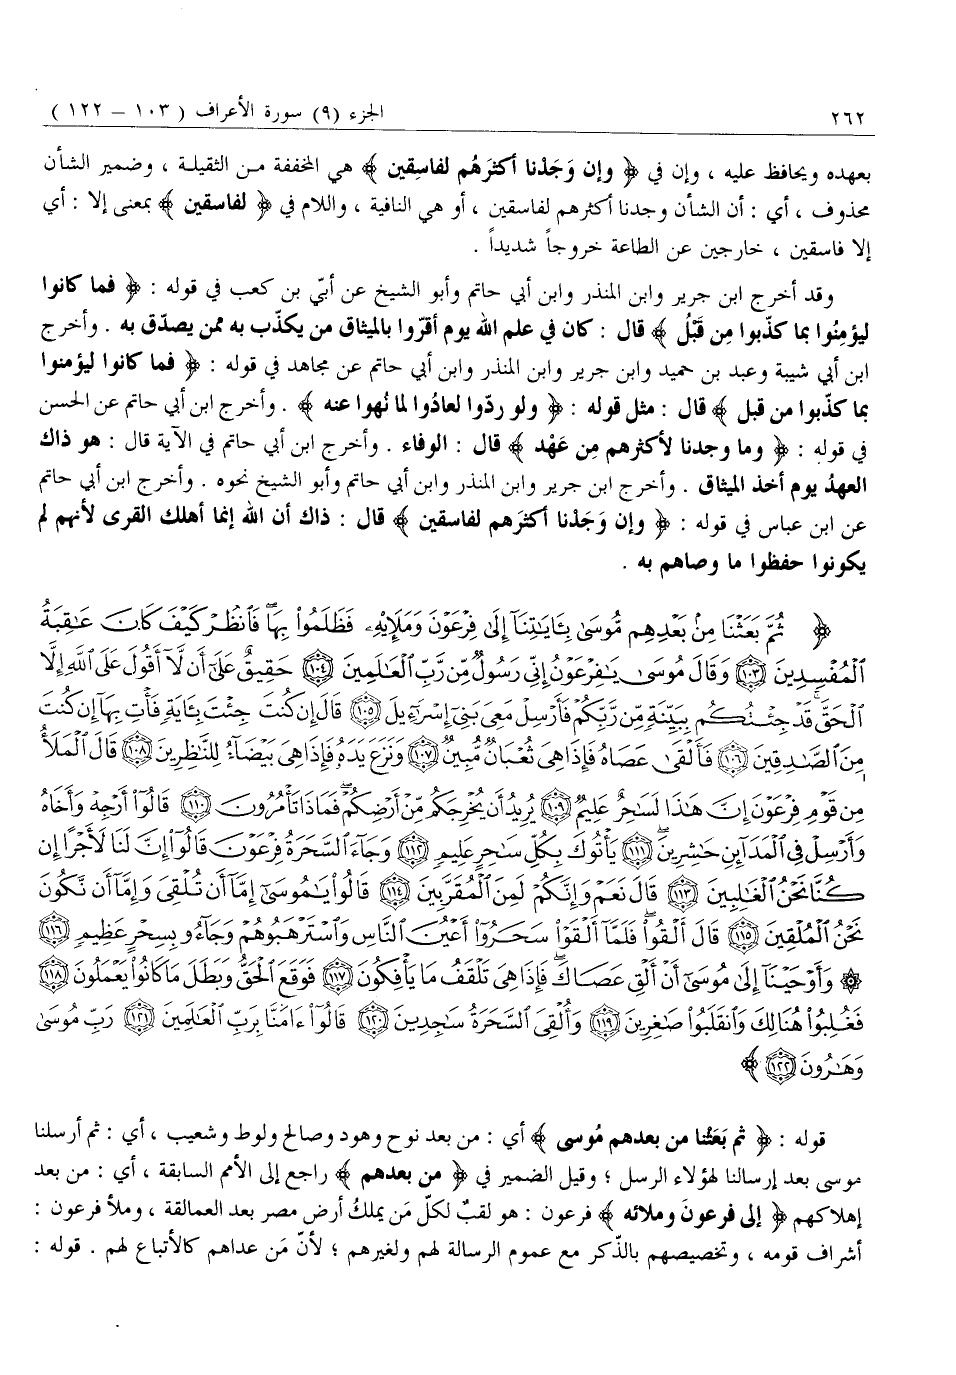 ٢٦٢
الجزء (٩) سورة الأعراف ( ١٠٣ – ١٢٢ )
بعهده ويحافظ عليه ، وإن في ﴿ وإن وَجَدْنا أكثرَهُم لفاسِقين ﴾ هي المخففة من الثقيلة ، وضمير الشأن
محذوف ، أي : أن الشأن وجدنا أكثرهم لفاسقين ، أو هي النافية ، واللام في ﴿ لفاسقين ﴾ بمعنى إلا : أي
إلا فاسقين ، خارجين عن الطاعة خروجاً شديداً .
وقد أخرج ابن جرير وابن المنذر وابن أبي حاتم وأبو الشيخ عن أبيّ بن كعب في قوله : ﴿ فما كانوا
ليؤمِنُوا بما كذّبوا مِن قَبْلُ ﴾ قال : كان في علم الله يوم أقرّوا بالميثاق من يكذّب به ممن يصدّق به . وأخرج
ابن أبي شيبة وعبد بن حميد وابن جرير وابن المنذر وابن أبي حاتم عن مجاهد في قوله : ﴿ فما كانوا ليؤمنوا
بما كذّبوا من قبل ﴾ قال : مثل قوله : ﴿ ولو ردّوا لعادُوا لما نُهوا عنه ﴾ . وأخرج ابن أبي حاتم عن الحسن
في قوله : ﴿ وما وجدنا لأكثرهم مِن عَهْد ﴾ قال : الوفاء . وأخرج ابن أبي حاتم في الآية قال : هو ذاك
العهدُ يوم أخذ الميثاق . وأخرج ابن جرير وابن المنذر وابن أبي حاتم وأبو الشيخ نحوه . وأخرج ابن أبي حاتم
عن ابن عباس في قوله : ﴿ وإن وَجَدْنا أكثرَهم لفاسقين ﴾ قال : ذاك أن الله إنما أهلك القرى لأنهم لم
يكونوا حفظوا ما وصاهم به .
﴿ ثُمَّ بَعَثْنَا مِنۢ بَعْدِهِم مُّوسَىٰ بِـَٔايَـٰتِنَآ إِلَىٰ فِرْعَوْنَ وَمَلَإِي۟هِۦ فَظَلَمُوا۟ بِهَا ۖ فَٱنظُرْ كَيْفَ كَانَ عَـٰقِبَةُ
ٱلْمُفْسِدِينَ ١٠٣ وَقَالَ مُوسَىٰ يَـٰفِرْعَوْنُ إِنِّى رَسُولٌ مِّن رَّبِّ ٱلْعَـٰلَمِينَ ١٠٤ حَقِيقٌ عَلَىٰٓ أَن لَّآ أَقُولَ عَلَى ٱللَّهِ إِلَّا
ٱلْحَقَّ ۚ قَدْ جِئْتُكُم بِبَيِّنَةٍ مِّن رَّبِّكُمْ فَأَرْسِلْ مَعِىَ بَنِىٓ إِسْرَٰٓءِيلَ ١٠٥ قَالَ إِن كُنتَ جِئْتَ بِـَٔايَةٍ فَأْتِ بِهَآ إِن كُنتَ
مِنَ ٱلصَّـٰدِقِينَ ١٠٦ فَأَلْقَىٰ عَصَاهُ فَإِذَا هِىَ ثُعْبَانٌ مُّبِينٌ ١٠٧ وَنَزَعَ يَدَهُۥ فَإِذَا هِىَ بَيْضَآءُ لِلنَّـٰظِرِينَ ١٠٨ قَالَ ٱلْمَلَأُ
مِن قَوْمِ فِرْعَوْنَ إِنَّ هَـٰذَا لَسَـٰحِرٌ عَلِيمٌ ١٠٩ يُرِيدُ أَن يُخْرِجَكُم مِّنْ أَرْضِكُمْ ۖ فَمَاذَا تَأْمُرُونَ ١١٠ قَالُوٓا۟ أَرْجِهْ وَأَخَاهُ
وَأَرْسِلْ فِى ٱلْمَدَآئِنِ حَـٰشِرِينَ ١١١ يَأْتُوكَ بِكُلِّ سَـٰحِرٍ عَلِيمٍ ١١٢ وَجَآءَ ٱلسَّحَرَةُ فِرْعَوْنَ قَالُوٓا۟ إِنَّ لَنَا لَأَجْرًا إِن
كُنَّا نَحْنُ ٱلْغَـٰلِبِينَ ١١٣ قَالَ نَعَمْ وَإِنَّكُمْ لَمِنَ ٱلْمُقَرَّبِينَ ١١٤ قَالُوا۟ يَـٰمُوسَىٰٓ إِمَّآ أَن تُلْقِىَ وَإِمَّآ أَن نَّكُونَ
نَحْنُ ٱلْمُلْقِينَ ١١٥ قَالَ أَلْقُوا۟ ۖ فَلَمَّآ أَلْقَوْا۟ سَحَرُوٓا۟ أَعْيُنَ ٱلنَّاسِ وَٱسْتَرْهَبُوهُمْ وَجَآءُو بِسِحْرٍ عَظِيمٍ ١١٦
۞ وَأَوْحَيْنَآ إِلَىٰ مُوسَىٰٓ أَنْ أَلْقِ عَصَاكَ ۖ فَإِذَا هِىَ تَلْقَفُ مَا يَأْفِكُونَ ١١٧ فَوَقَعَ ٱلْحَقُّ وَبَطَلَ مَا كَانُوا۟ يَعْمَلُونَ ١١٨
فَغُلِبُوا۟ هُنَالِكَ وَٱنقَلَبُوا۟ صَـٰغِرِينَ ١١٩ وَأُلْقِىَ ٱلسَّحَرَةُ سَـٰجِدِينَ ١٢٠ قَالُوٓا۟ ءَامَنَّا بِرَبِّ ٱلْعَـٰلَمِينَ ١٢١ رَبِّ مُوسَىٰ
وَهَـٰرُونَ ١٢٢ ﴾
قوله : ﴿ ثم بَعَثْنا من بعدهم مُوسى ﴾ أي : من بعد نوح وهود وصالح ولوط وشعيب ، أي : ثم أرسلنا
موسى بعد إرسالنا لهؤلاء الرسل ؛ وقيل الضمير في ﴿ من بعدهم ﴾ راجع إلى الأمم السابقة ، أي : من بعد
إهلاكهم ﴿ إلى فرعونَ وملائه ﴾ فرعون : هو لقبٌ لكلّ مَن يملكُ أرض مصر بعد العمالقة ، وملأ فرعون :
أشراف قومه ، وتخصيصهم بالذّكر مع عموم الرسالة لهم ولغيرهم ؛ لأنّ مَن عداهم كالأتباع لهم . قوله :